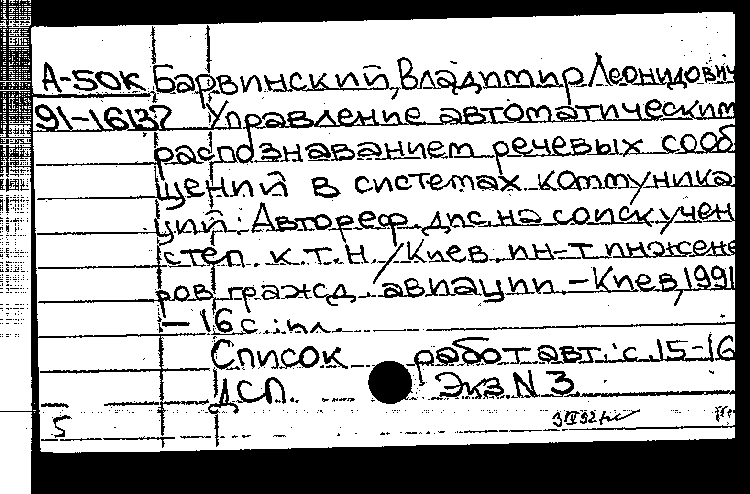 А-50к Барвинский, Владимир Леонидович
91-16137 Управление автоматическим
распознаванием речевых сооб
щений в системах коммуника
ций: Автореф. дис. на соиск. учен.
степ. к.т.н. / Киев. ин-т инжене
ров гражд. авиации. – Киев, 1991
– 16 с.: ил.
Список работ авт.: с. 15-16
ДСП. Экз. N 3
5